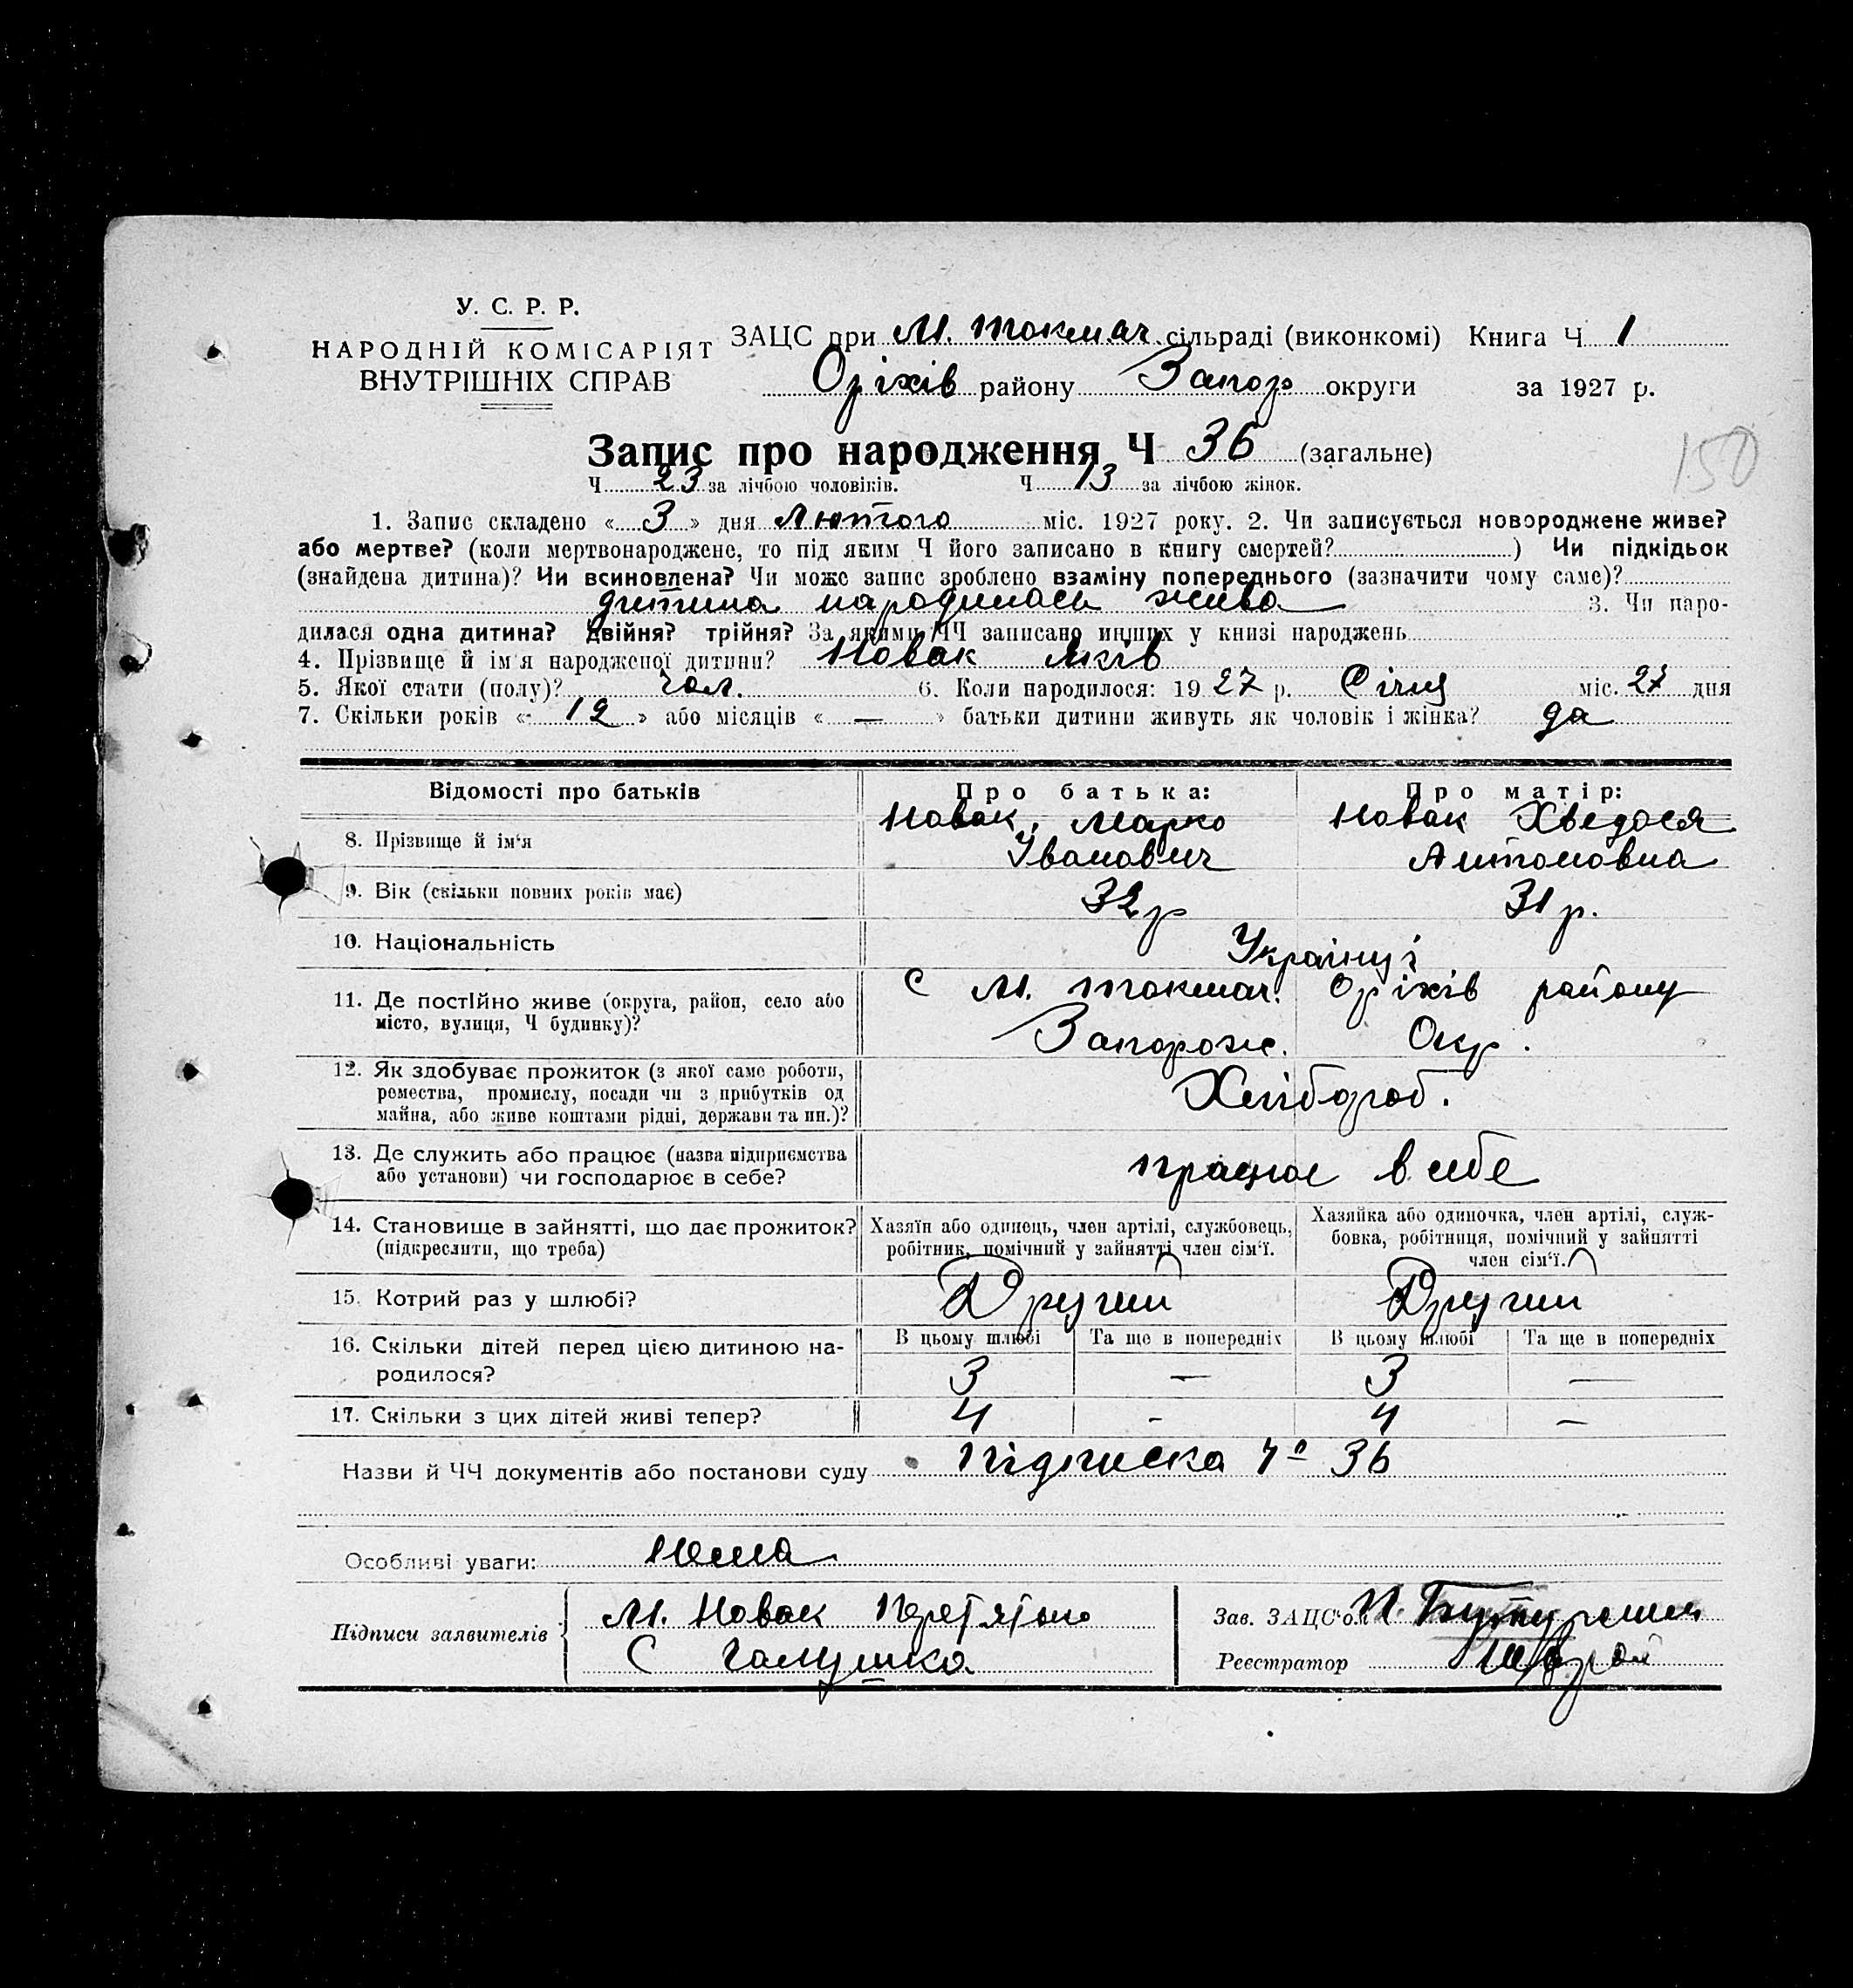 У. С. Р. Р.
НАРОДНІЙ КОМІСАРІЯТ
ВНУТРІШНІХ СПРАВ
ЗАЦС при М. Токмач. сільраді (виконкомі) Книга Ч 1
Оріхів району Запор округи за 1927 р.
Запис про народження Ч 36 (загальне)
150
Ч 23 за лічбою чоловіків. Ч 13 за лічбою жінок.
1. Запис складено « 3 » дня Лютого міс. 1927 року. 2. Чи записується новороджене живе?
або мертве? (коли мертвонароджене, то під яким Ч його записано в книгу смертей? ) Чи підкідьок
(знайдена дитина)? Чи всиновлена? Чи може запис зроблено взаміну попереднього (зазначити чому саме)?
дитина народилась жива 3. Чи наро-
дилася одна дитина? двійня? трійня? За якими ЧЧ записано инших у книзі народжень
4. Прізвище й ім'я народженої дитини? Новак Яків
5. Якої стати (полу)? чол. 6. Коли народилося: 19 27 р. Січня міс. 27 дня
7. Скільки років « 12 » або місяців « — » батьки дитини живуть як чоловік і жінка? да
Відомості про батьків Про батька: Про матір:
8. Прізвище й ім'я Новак Марко Новак Хведося
Іванович Антоновна
9. Вік (скільки повних років має) 32 р 31 р.
10. Національність Українці
11. Де постійно живе (округа, район, село або С М. Токмач. Оріхів району
місто, вулиця, Ч будинку)? Запорож. Окр.
12. Як здобуває прожиток (з якої саме роботи, Хлібороб.
ремества, промислу, посади чи з прибутків од
майна, або живе коштами рідні, держави та ин.)?
13. Де служить або працює (назва підприємства працює в себе
або установи) чи господарює в себе?
14. Становище в зайнятті, що дає прожиток? Хазяїн або одинець, член артілі, службовець, Хазяйка або одиночка, член артілі, служ-
(підкреслити, що треба) робітник, помічний у зайнятті член сім'ї. бовка, робітниця, помічний у зайнятті
член сім'ї.
15. Котрий раз у шлюбі? Другий Другий
16. Скільки дітей перед цією дитиною на- В цьому шлюбі Та ще в попередніх В цьому шлюбі Та ще в попередніх
родилося? 3 — 3 —
17. Скільки з цих дітей живі тепер? 4 - 4 —
Назви й ЧЧ документів або постанови суду Підписка Ч° 36
Особливі уваги: Нема
Підписи заявителів М. Новак Зав. ЗАЦС'ом П.
С Галушка Реєстратор